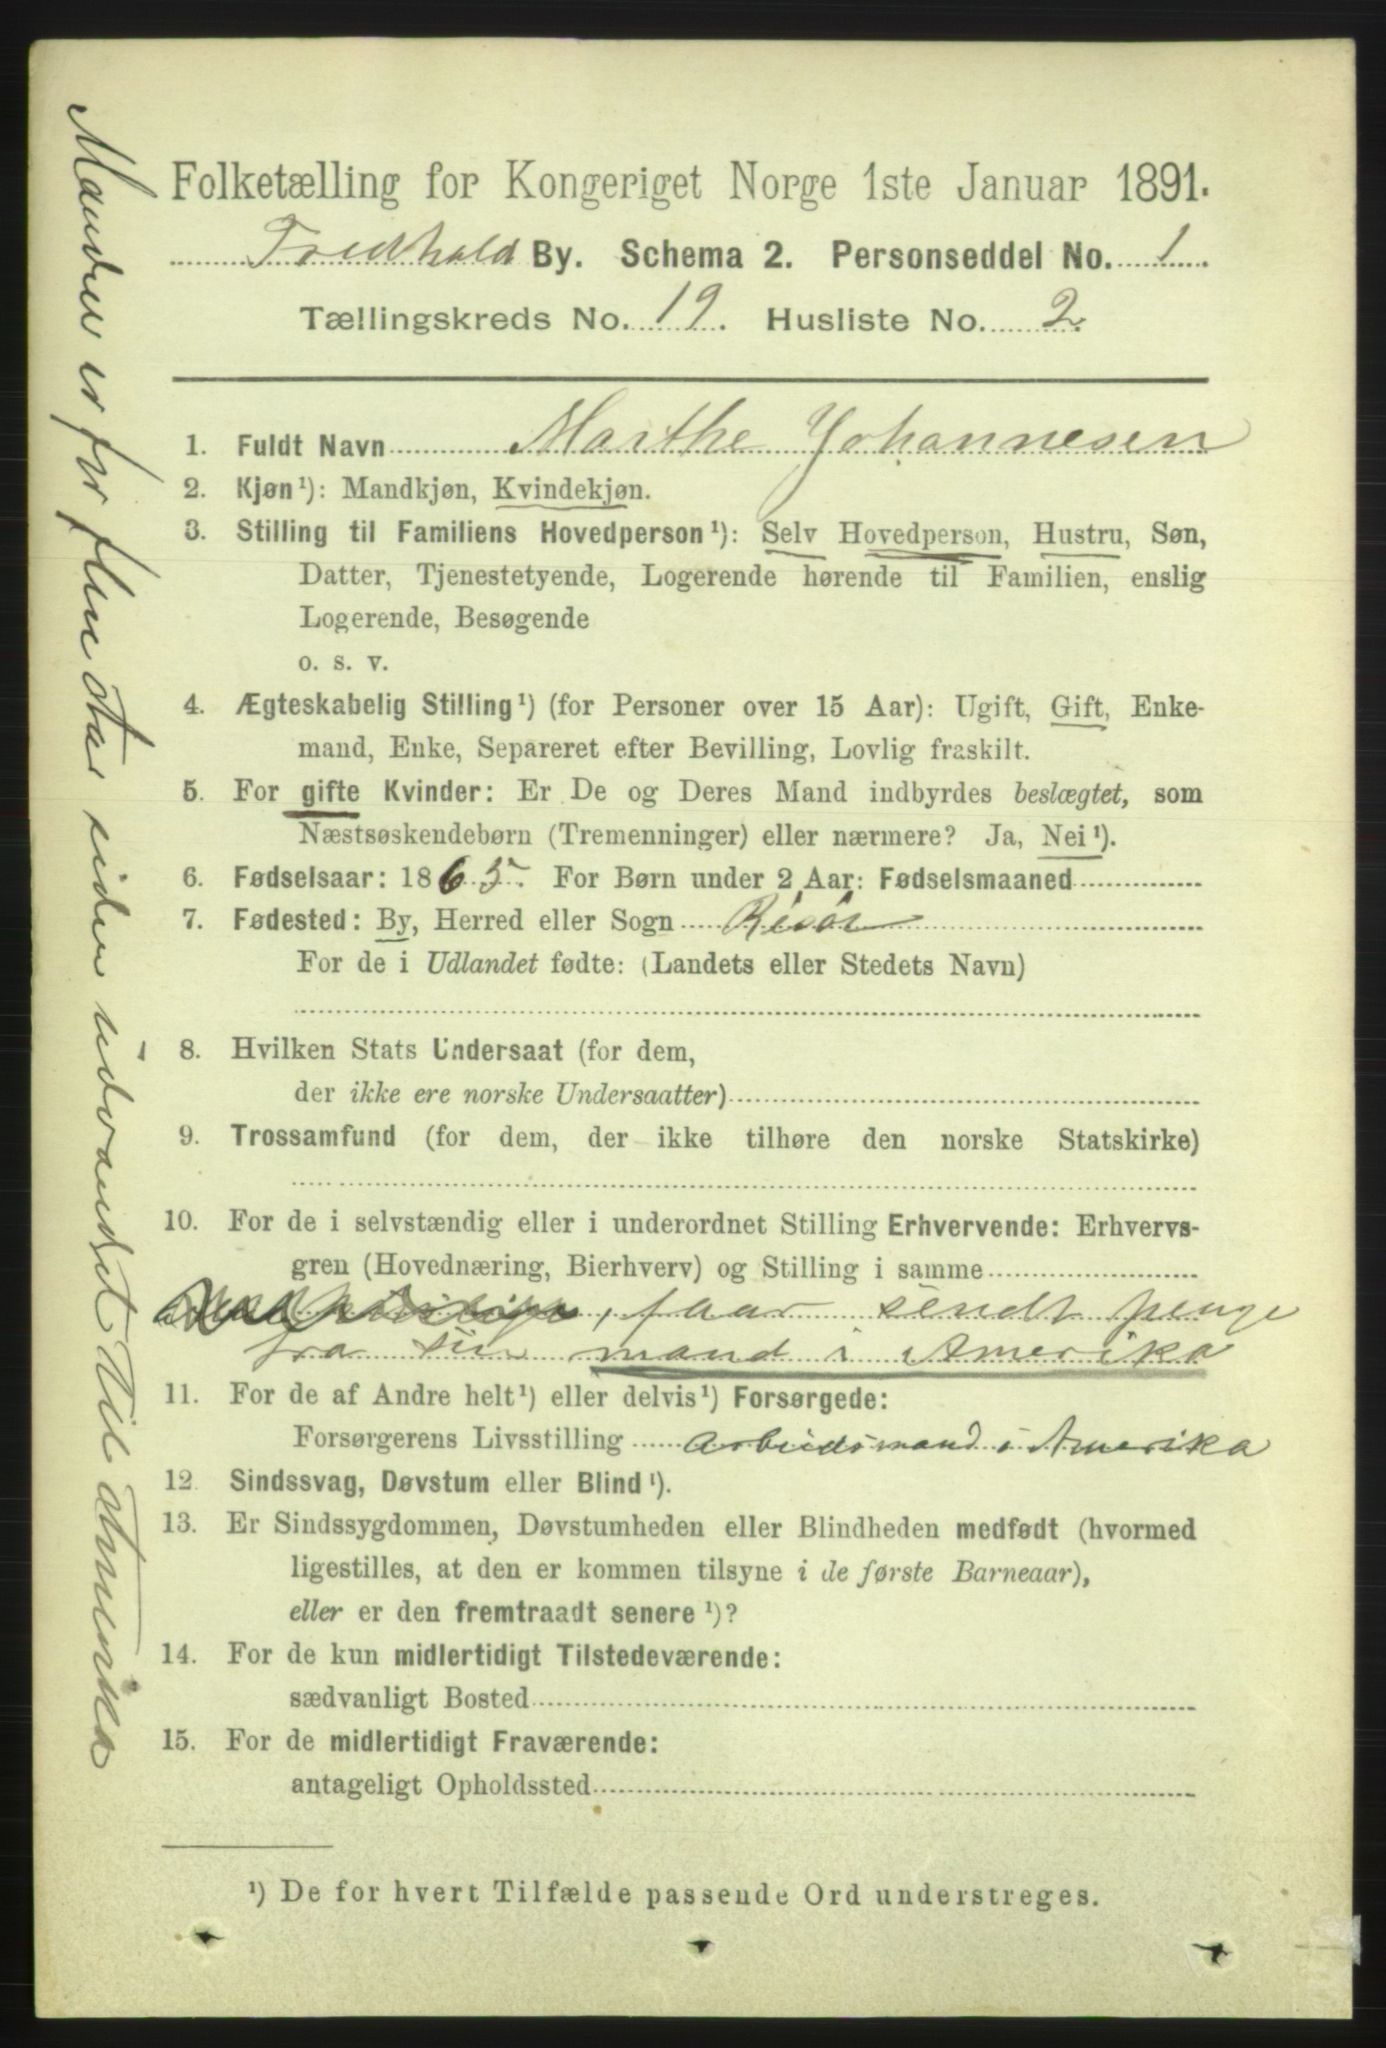 Folketælling for Kongeriget Norge 1ste Januar 1891.
Fredhald By. Schema 2. Personseddel No. 1
Tællingskreds No. 19. Husliste No. 2.
1. Fuldt Navn Marthe Johannesen
2. Kjøn¹): Mandkjøn, Kvindekjøn.
3. Stilling til Familiens Hovedperson¹): Selv Hovedperson, Hustru, Søn,
Datter, Tjenestetyende, Logerende hørende til Familien, enslig
Logerende, Besøgende
o. s. v.
4. Ægteskabelig Stilling¹) (for Personer over 15 Aar): Ugift, Gift, Enke-
mand, Enke, Separeret efter Bevilling, Lovlig fraskilt.
5. For gifte Kvinder: Er De og Deres Mand indbyrdes beslægtet, som
Næstsøskendebørn (Tremenninger) eller nærmere? Ja, Nei¹).
6. Fødselsaar: 1865. For Børn under 2 Aar: Fødselsmaaned
7. Fødested: By, Herred eller Sogn Risör
For de i Udlandet fødte: (Landets eller Stedets Navn)
8. Hvilken Stats Undersaat (for dem,
der ikke ere norske Undersaatter)
9. Trossamfund (for dem, der ikke tilhøre den norske Statskirke)
10. For de i selvstændig eller i underordnet Stilling Erhvervende: Erhvervs-
gren (Hovednæring, Bierhverv) og Stilling i samme
, faar sendt penge
fra sin mand i Amerika
11. For de af Andre helt¹) eller delvis¹) Forsørgede:
Forsørgerens Livsstilling Arbeidsmand i Amerika
12. Sindssvag, Døvstum eller Blind¹).
13. Er Sindssygdommen, Døvstumheden eller Blindheden medfødt (hvormed
ligestilles, at den er kommen tilsyne i de første Barneaar),
eller er den fremtraadt senere¹)?
14. For de kun midlertidigt Tilstedeværende:
sædvanligt Bosted
15. For de midlertidigt Fraværende:
antageligt Opholdssted
¹) De for hvert Tilfælde passende Ord understreges.
Manden er for flere Aar siden udvandret til Amerika